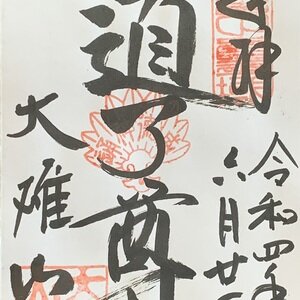 奉拝
令和四年
六月廿
道了尊
大雄山